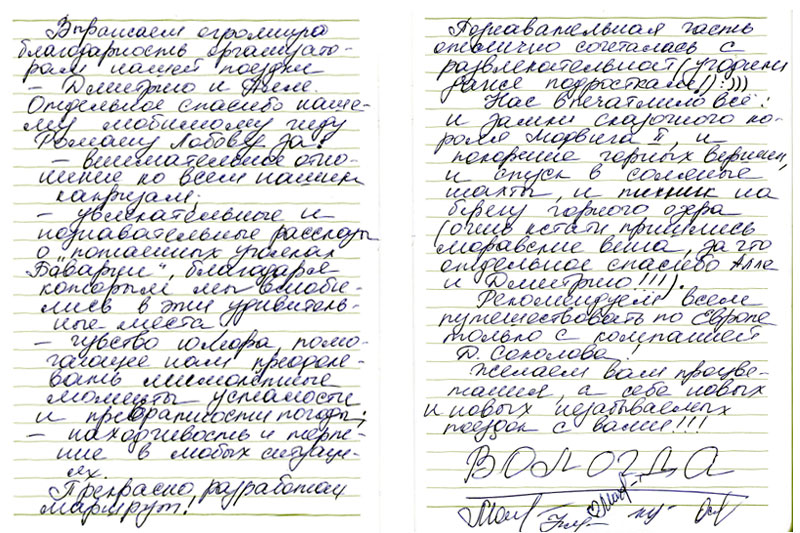 Выражаем огромную
благодарность организато-
рам нашей поездки
– Дмитрию и Алле.
Отдельное спасибо наше-
му любимому гиду
Роману Лобову за:
– внимательное отно-
шение ко всем нашим
капризам;
– увлекательные и
познавательные рассказы
о „потаенных уголках
Баварии", благодаря
которым мы влюби-
лись в эти удивитель-
ные места
– чувство юмора, помо-
гающее нам преодоле-
вать мимолётные
моменты усталости
и превратности погоды;
– находчивость и терпе-
ние в любых ситуаци-
ях.
Прекрасно разработан
маршрут!
Познавательная часть
отлично сочеталась с
развлекательной (угодили
даже подросткам!):)))
Нас впечатлило всё:
и замки сказочного ко-
роля Людвига II, и
покорение горных вершин,
и спуск в соляные
шахты, и пикник на
берегу горного озера
(очень кстати пришлись
моравские вина, за что
отдельное спасибо Алле
и Дмитрию!!!).
Рекомендуем всем
путешествовать по Европе
только с компанией
Д. Соколова,
Желаем вам процве-
тания, а себе новых
и новых незабываемых
поездок с вами!!!
ВОЛОГДА